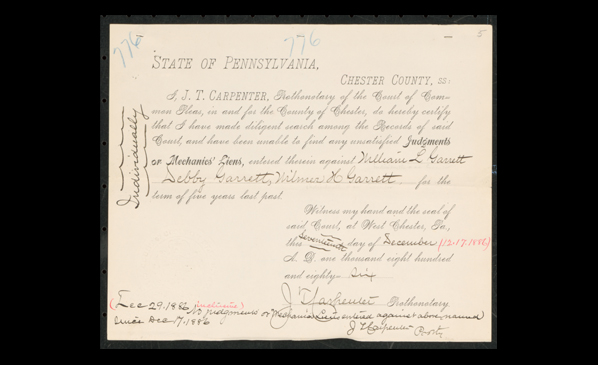 776
776
5
STATE OF PENNSYLVANIA,
CHESTER COUNTY, ss:
I, J. T. CARPENTER, Prothonotary of the Court of Com-
mon Pleas, in and for the County of Chester, do hereby certify
that I have made diligent search among the Records of said
Court, and have been unable to find any unsatisfied Judgments
or Mechanics' Liens, entered therein against William L Garrett
Debby Garrett, Wilmer H Garrett for the
term of five years last past.
Individually
Witness my hand and the seal of
said Court, at West Chester, Pa.,
this Seventeenth day of December (12-17-1886)
A. D. one thousand eight hundred
and eighty-Six
J T Carpenter Prothonotary
(Dec 29.1886, inclusive) No judgments or Mechanics Liens entered against above named
since Dec 17, 1886
J T Carpenter
Proth